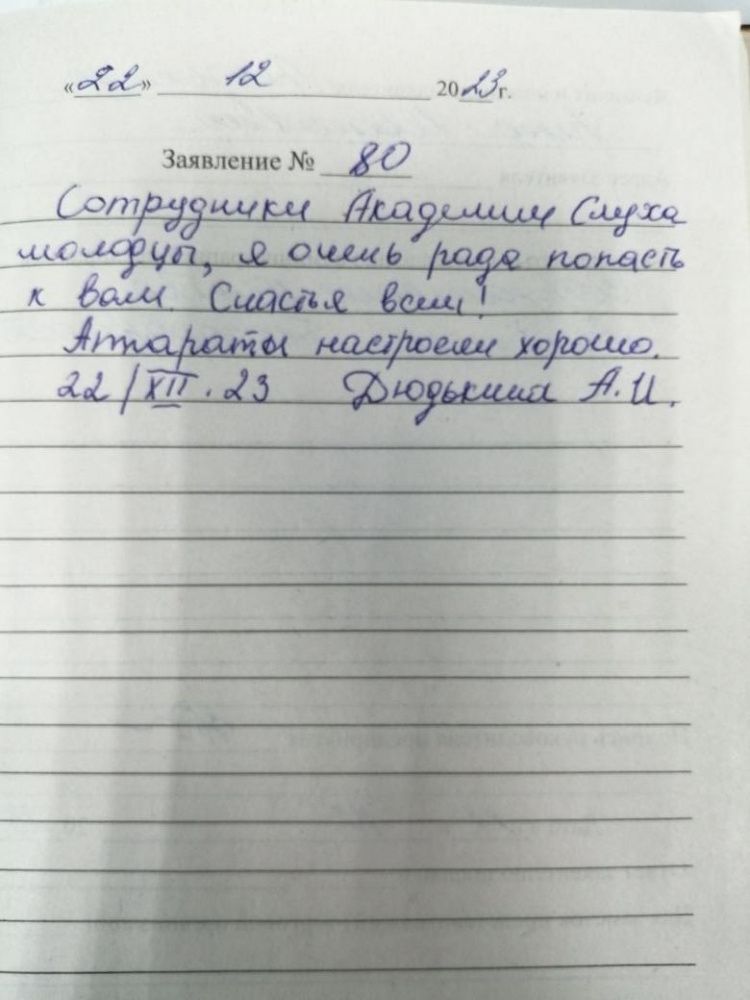 «22» 12 2023 г.
Заявление № 80
Сотрудники Академии Слуха
молодцы, я очень рада попасть
к вам. Счастья всем!
Аппараты настроем хорошо.
22/XII.23 Дюдькина А.И.